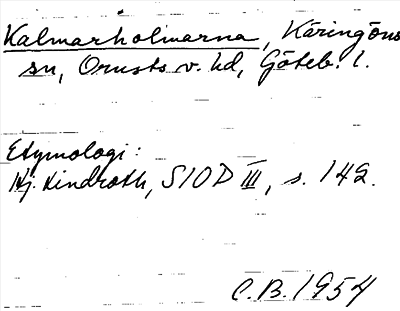 Kalmarholmarna, Käringöns
sn, Orusts v. hd, Göteb. l.
Etymologi:
Hj. Lindroth, SIOD III, s. 142.
C.B. 1954